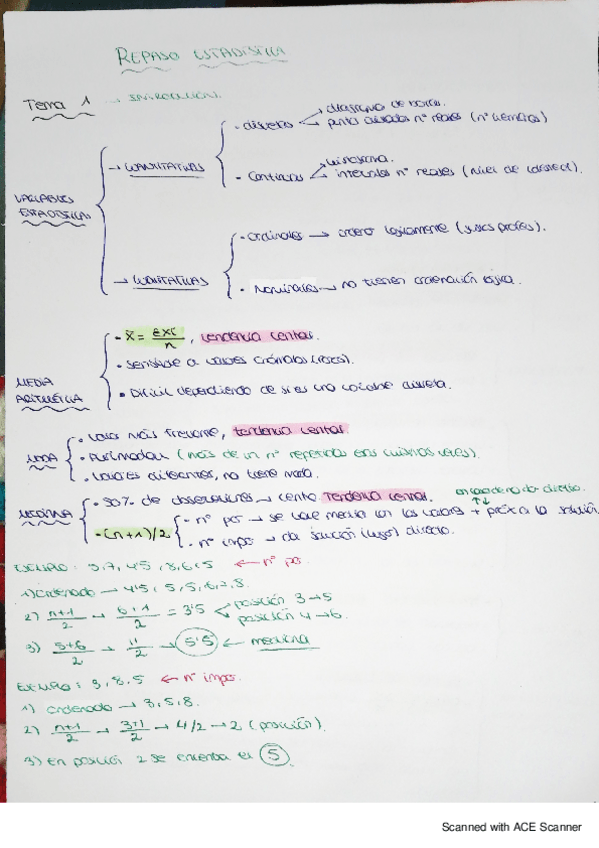 REPASO ESTADISTICA
Tema 1 → INTRODUCCIÓN.
VARIABLES ESTADISTICAS
→ CUANTITATIVAS
• discretas
diagrama de barras.
puntos aislados nº reales (nº
• Continuas
histograma.
intervalos nº reales (nivel de colesterol).
→ CUALITATIVAS
• ordinales → orden lógicamente
• Nominales → no tienen ordenación lógica.
MEDIA ARITMÉTICA
• x̄ = Σxi / n , tendencia central.
• sensible a valores
• Dificil dependiendo de si es una variable discreta.
MODA
• valor más frecuente, tendencia central.
• Plurimodal (más de un nº repetido
• valores diferentes, no tiene moda.
MEDIANA
• 50% de observaciones → centro Tendencia central.
• (n+1)/2
• nº par → se hace media con los valores + próx a la solución
• nº impar → da solución (lugar) directo.
EJEMPLO: 5, 7, 4'5, 8, 6, 5 ← nº par
1) Ordenado → 4'5, 5, 5, 6, 7, 8.
2) n+1 / 2 → 6+1 / 2 = 3'5
posición 3 → 5
posición 4 → 6.
3) 5+6 / 2 → 11 / 2 → 5'5 ← mediana
EJEMPLO: 3, 8, 5 ← nº impar.
1) ordenado → 3, 5, 8.
2) n+1 / 2 → 3+1 / 2 → 4/2 → 2 (posición).
3) En posición 2 se encuentra el 5.
Scanned with ACE Scanner